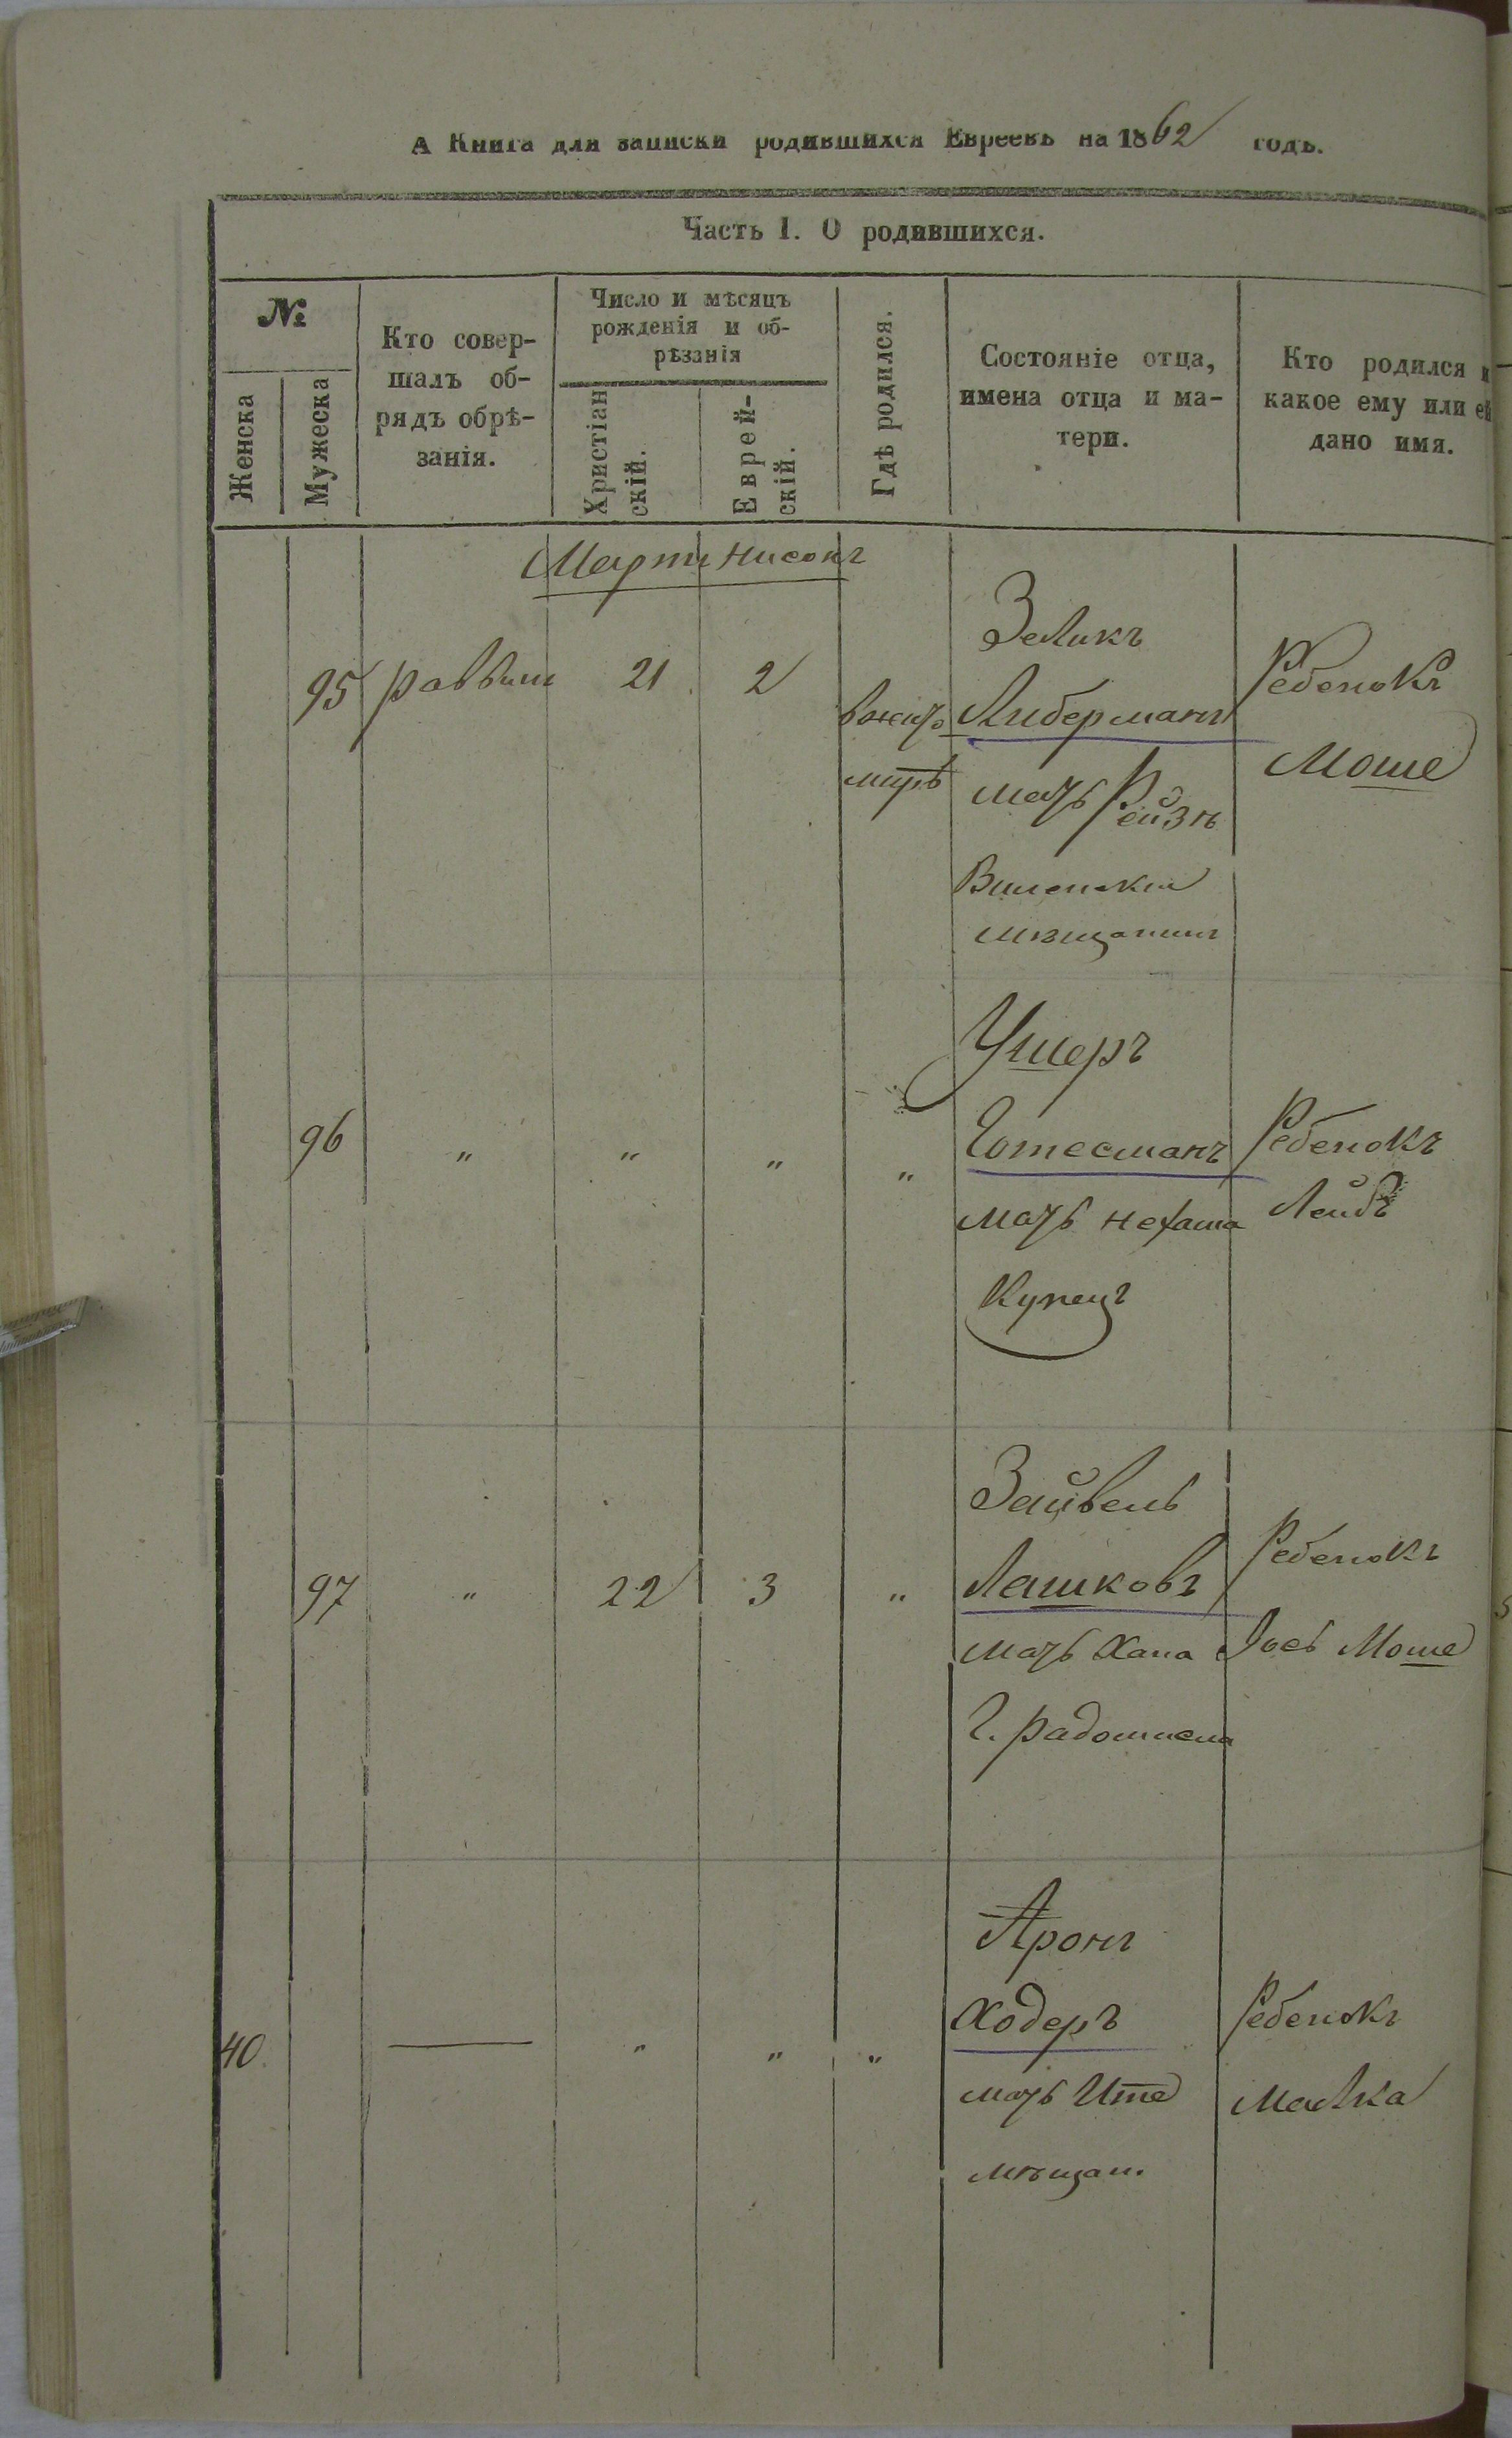 А Книга для записки родившихся Евреевъ на 1862 годъ.
Часть I. О родившихся.
№
Женска
Мужеска
Кто совер-
шалъ об-
рядъ обрѣ-
занія.
Число и мѣсяцъ
рожденія и об-
рѣзанія
Христіан
скій.
Еврей-
скій.
Гдѣ родился.
Состояніе отца,
имена отца и ма-
тери.
Кто родился и
какое ему или ей
дано имя.
Мартъ Нисонъ
95 раввин 21 2
в жито
мирѣ
Зеликъ
Либерманъ
мать Рейзя
Виленский
мѣщанинъ
Ребенокъ
Моше
96 " " " "
Ушеръ
Готесманъ
мать Нехама
Купецъ
Ребенокъ
Лейбъ
97 " 22 3 "
Зайвель
Лашковъ
мать Хана
Г. Радомысля
Ребенокъ
Іось Моше
40 — " " "
Аронъ
Ходеръ
мать Ите
мѣщан.
Ребенокъ
Малка